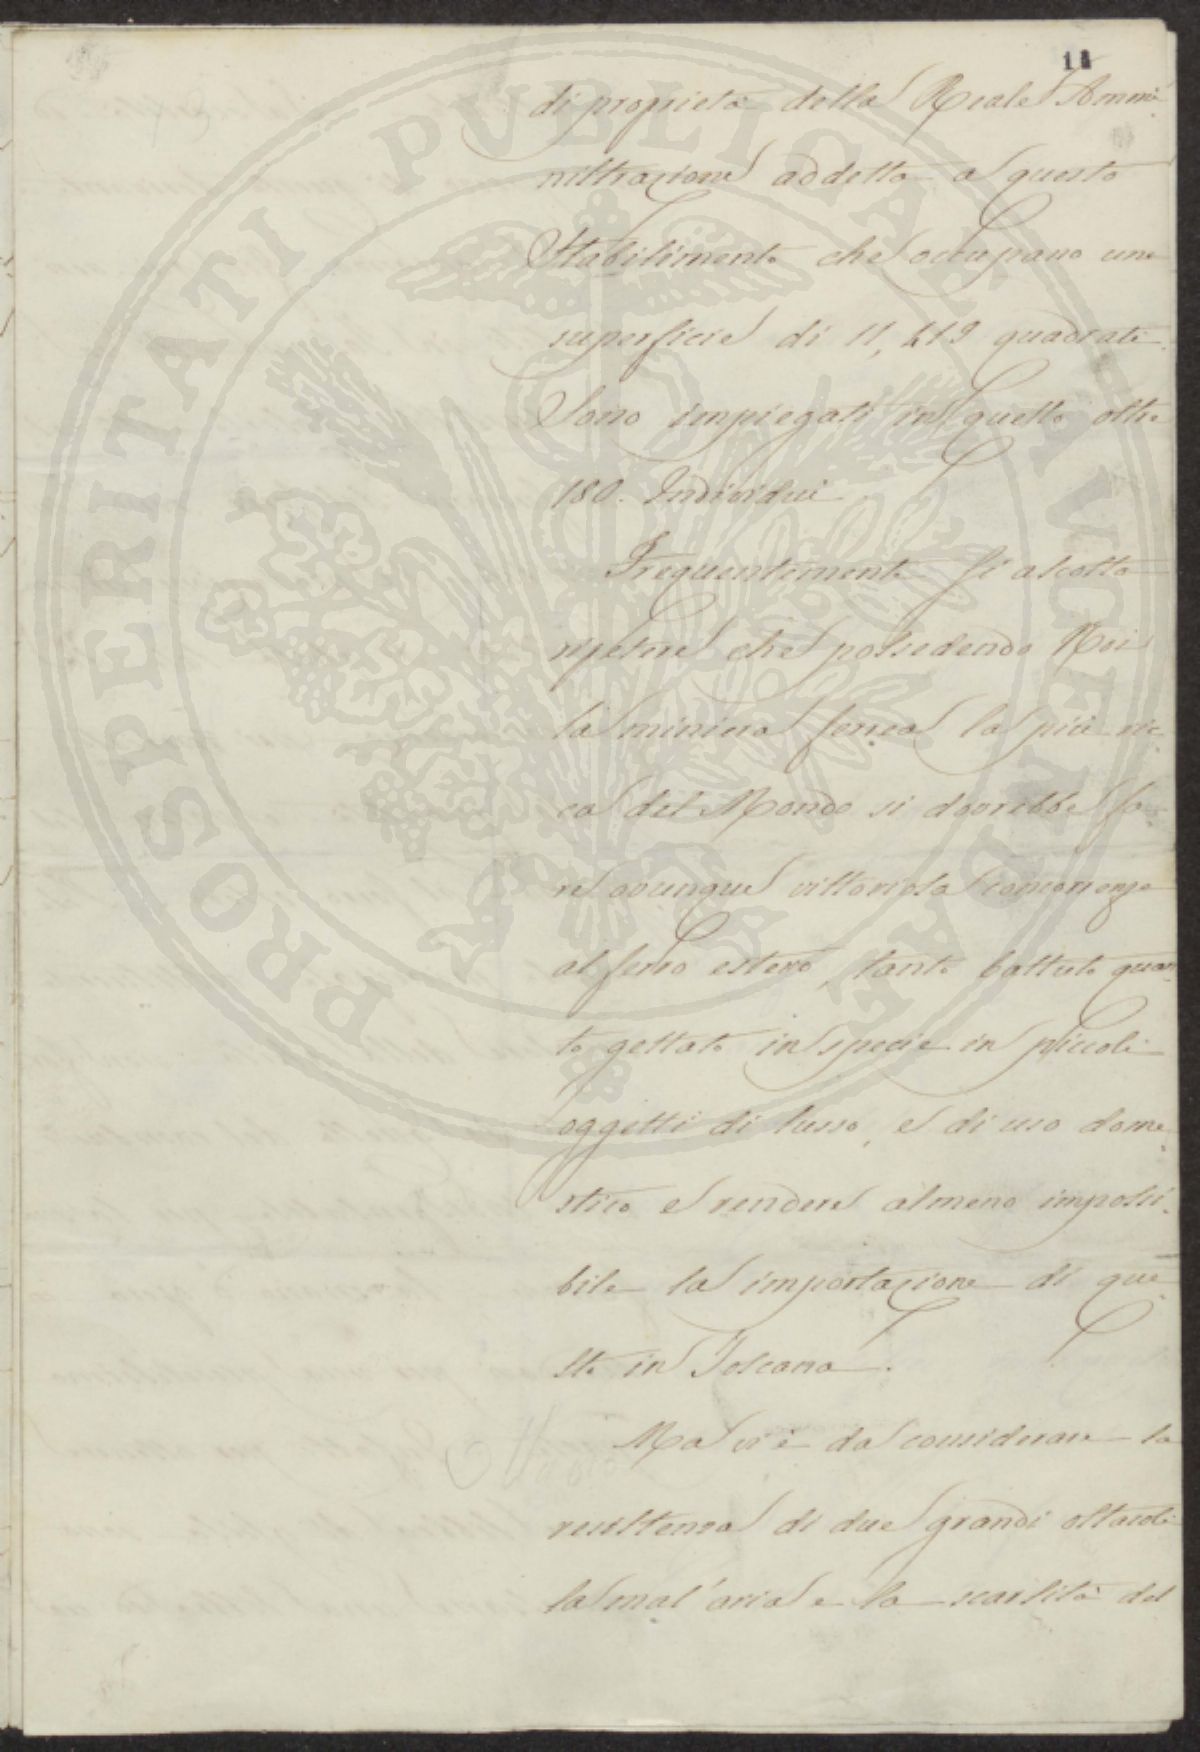 11
di proprietà della Reale Ammi-
nistrazione addetta a questo
Stabilimento che occupano una
superficie di 11,219 quadrati.
Sono impiegati in questo oltre
180. Individui
Frequentemente si ascolta
ripetere che possedendo Noi
la miniera ferrea la più ric-
ca del Mondo si dovrebbe fa-
re ovunque vittoriosa concorrenza
al ferro estero, tanto battuto quan-
to gettato in specie in piccoli
oggetti di lusso, e di uso dome-
stico e rendere almeno impossi-
bile la importazione di que-
sto in Toscana.
Ma vi è da considerare la
resistenza di due grandi ostacoli
la mal'aria e la scarsità del
PROSPERITATI PUBLICAE AUGENDAE